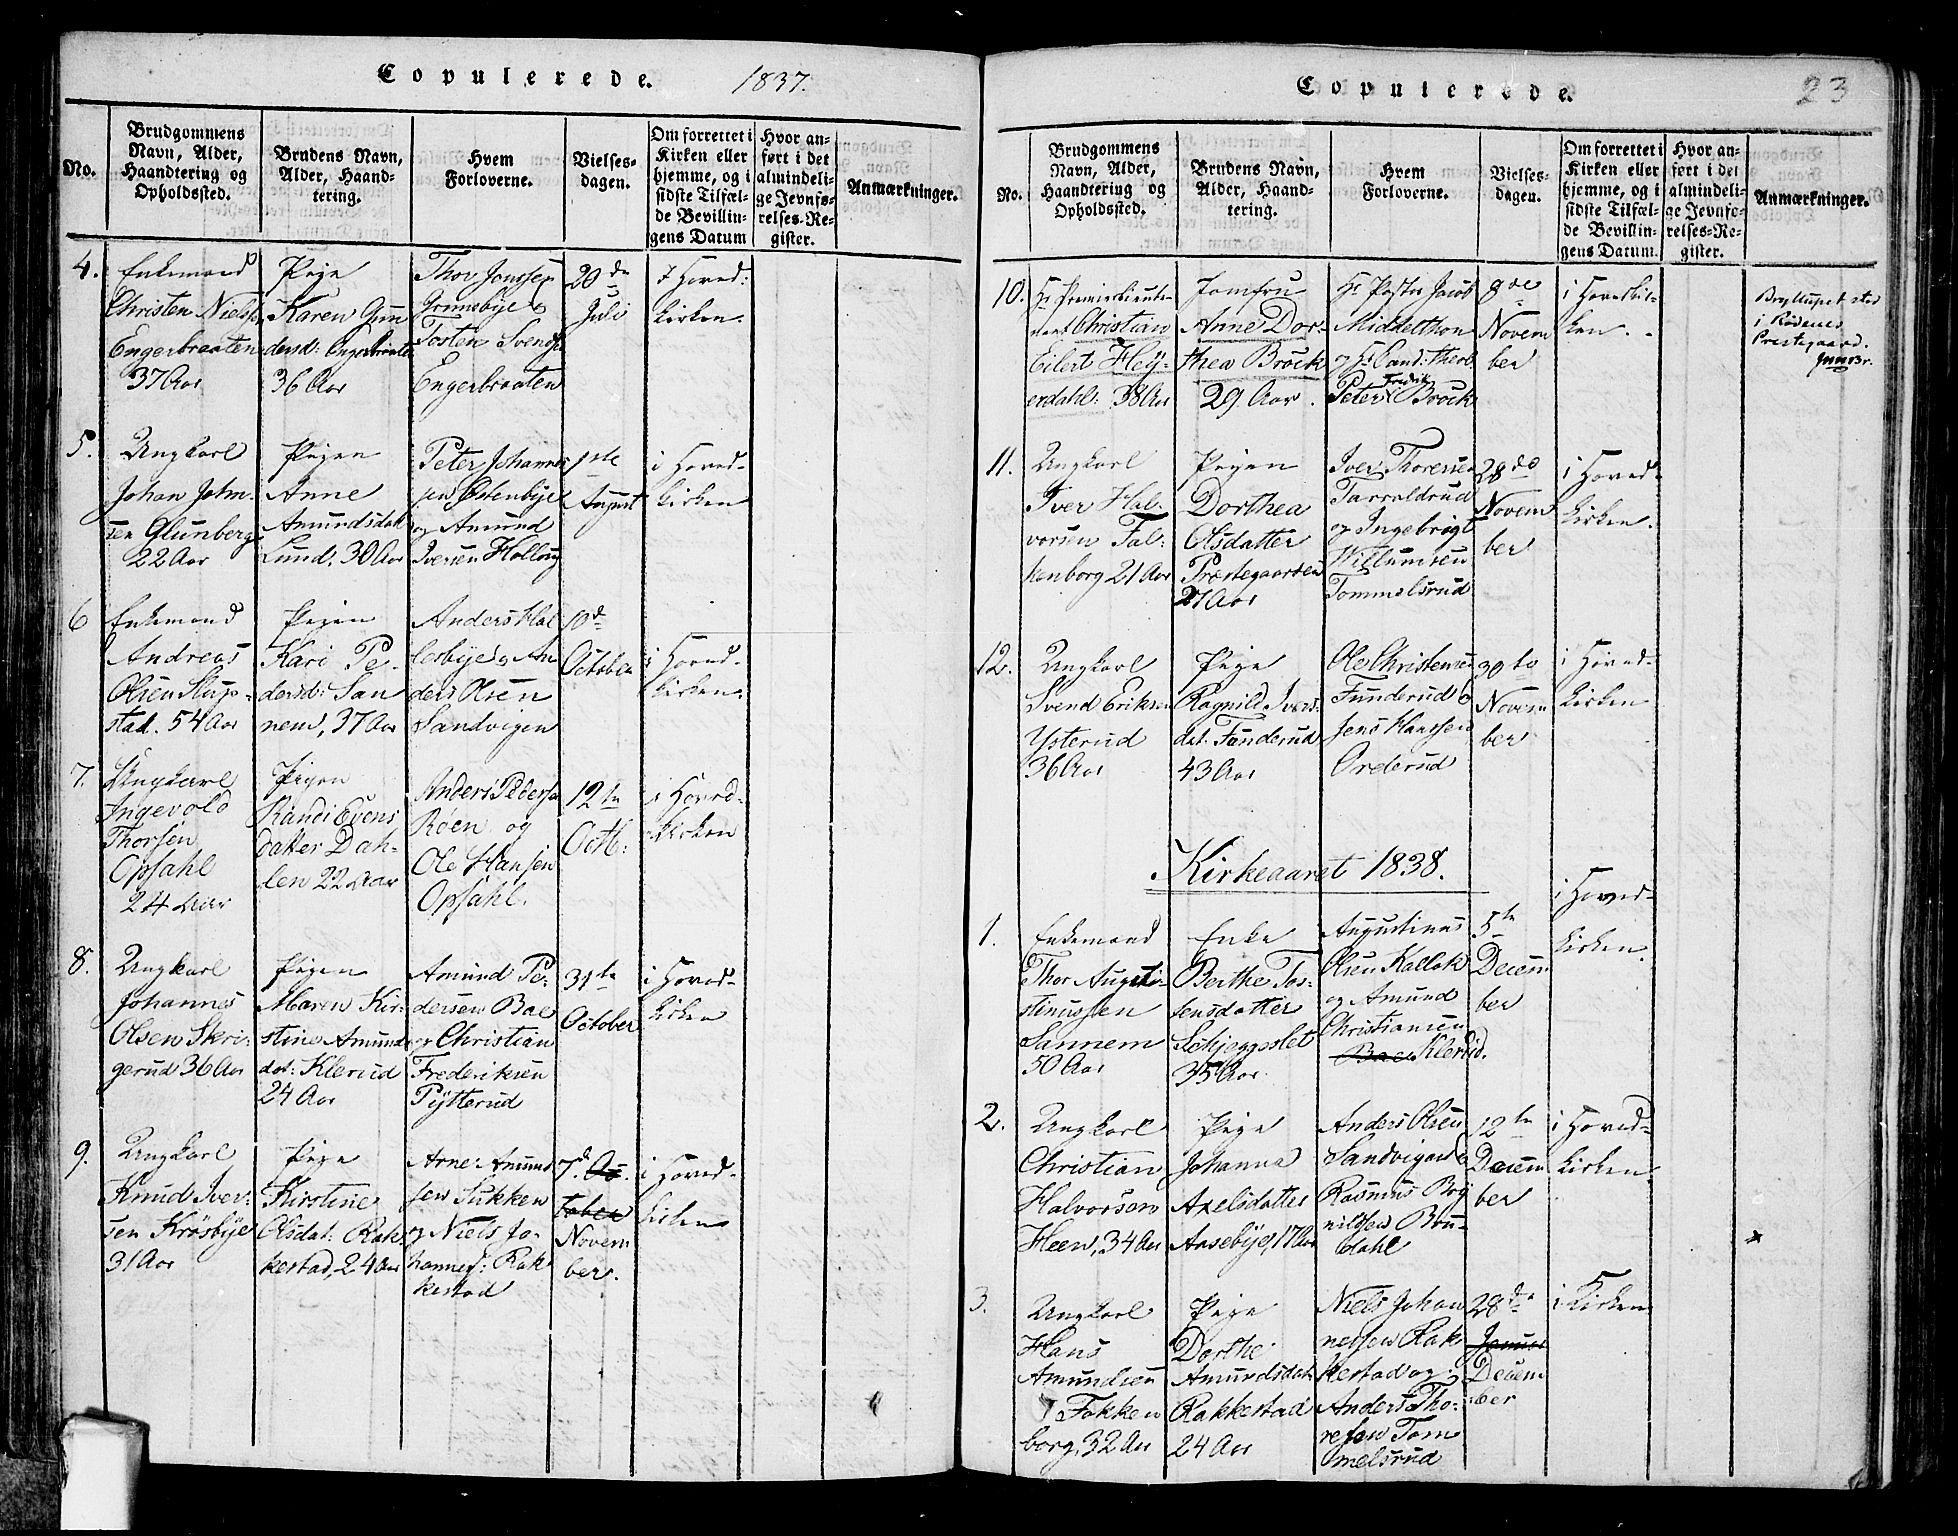 Copulerede. 1837.
No.
Brudgommens
Navn, Alder,
Haandtering og
Opholdssted.
Brudens Navn,
Alder, Haand-
tering.
Hvem
Forloverne.
Vielses-
dagen.
Om forrettet i
Kirken eller
hjemme, og i
sidste Tilfæl-
de Bevillin-
gens Datum
Hvor an-
ført i det
almindeli-
ge Jevnfø-
relses-Re-
gister.
Anmærkninger.
4.
Enkemand
Christen Niels
Engerbraaten
37 Aar
Pige
Karen Gun
dersd: Engerbraaten
36 Aar
Thor Jonssen
Grimsbye &
Tosten Svends
Engerbraaten
20de
Juli
I Hoved:
kirken.
5.
Ungkarl
Johan John-
sen Glunberg
22 Aar
Pigen
Anne
Amundsdat
Lund. 30 Aar
Peter Johannes
sen Østenbye
og Amund
Iversen Holloug
1ste
August
i Hoved-
kirken
6
Enkemand
Andreas
Olsen Slup-
stad. 54 Aar
Pigen
Kari Pe-
dersd: San
nem, 37 Aar
Anders Kal
lerbye og An
ders Olsen
Sandvigen
10d
October
i Hoved-
kirken.
7.
Ungkarl
Ingevold
Thorsen
Opsahl
24 Aar
Pigen
Randi Evens
datter Dah-
len 22 Aar
Anders Peders
Røen og
Ole Hansen
Opsahl.
12te
Octb:
i Hoved-
kirken
8.
Ungkarl
Johannes
Olsen Skri-
gerud 36 Aar
Pigen
Maren Kir-
stine Amunds
dat: Klerud
24 Aar
Amund Pe-
dersen Bae
og Christian
Frederiksen
Pytterud
31te
October
i Hoved-
kirken
9.
Ungkarl
Knud Iver-
sen Krosbye
31 Aar
Pige
Kirstine
Olsdat: Rak
kestad, 24 Aar
Arne Amund
sen Sukken
og Niels Jo-
hannes: Rak
kestad
7d. Oc
tober
Novem
ber.
i Hoved-
kirken
Copulerede. 23
No.
Brudgommens
Navn, Alder,
Haandtering og
Opholdssted.
Brudens Navn,
Alder, Haand-
tering.
Hvem
Forloverne.
Vielses-
dagen.
Om forrettet i
Kirken eller
hjemme, og i
sidste Tilfæl-
de Bevillin-
gens Datum.
Hvor an-
ført i det
almindeli-
ge Jevnfø-
relses-Re-
gister.
Anmærkninger.
10.
Hr Premierlieute-
nant Christian
Eilert Hey-
erdahl: 38 Aar
Jomfru
Anne Dor-
thea Brock
29 Aar.
Hr Pastor Jacob
Middelthon
og Hr Cand: theol.
Peter Fredrik Brock
8de
Novem
ber
i Hovedkir-
ken.
Bryllupet stod
i Rødenes
Prestegaard.
11.
Ungkarl
Iver Hal-
vorsen Fal-
kenborg 21 Aar
Pigen
Dorthea
Olsdatter
Præstegaarden
27 Aar
Iver Thoresen
Tarraldrud
og Ingebrigt
Willumsen
Tommelsrud
28de
Novem
ber
i Hoved-
kirken.
12.
Ungkarl
Svend Eriksen
Ysterud
36 Aar
Pige
Ragnild Ivers-
dat. Funderud
43 Aar
Ole Christensen
Funderud &
Jens Hanssen
Orderud
30te
Novem
ber
i Hoved-
kirken
Kirkeaaret 1838.
1.
Enkemand
Thor Augsti-
stinussen
Sannem
50 Aar
Enke
Berthe Tos-
tensdatter
Schjeggeslet
35 Aar.
Augustinus
Olsen Kallak
og Amund
Christiansen
Bae Klerud.
5te
Decem
ber
i Hoved-
kirken.
2.
Ungkarl
Christian
Halvorsen
Heen, 34 Aar
Pige
Johanna
Axelsdatter
Aasebye, 17 Aar
Anders Olsen
Sandvigen &
Rasmus Bry
nildsen Bøn-
dahl
12te
Decem
ber
i Hoved-
kirken.
3.
Ungkarl
Hans
Amundsen
Fokken
borg, 32 Aar
Pige
Dorthe
Amundsdat
Rakkestad
24 Aar
Niels Johan
nessen Rak
kestad og
Anders Tho-
resen Tom
melsrud
28de
Januar
Decem
ber
i Kirken